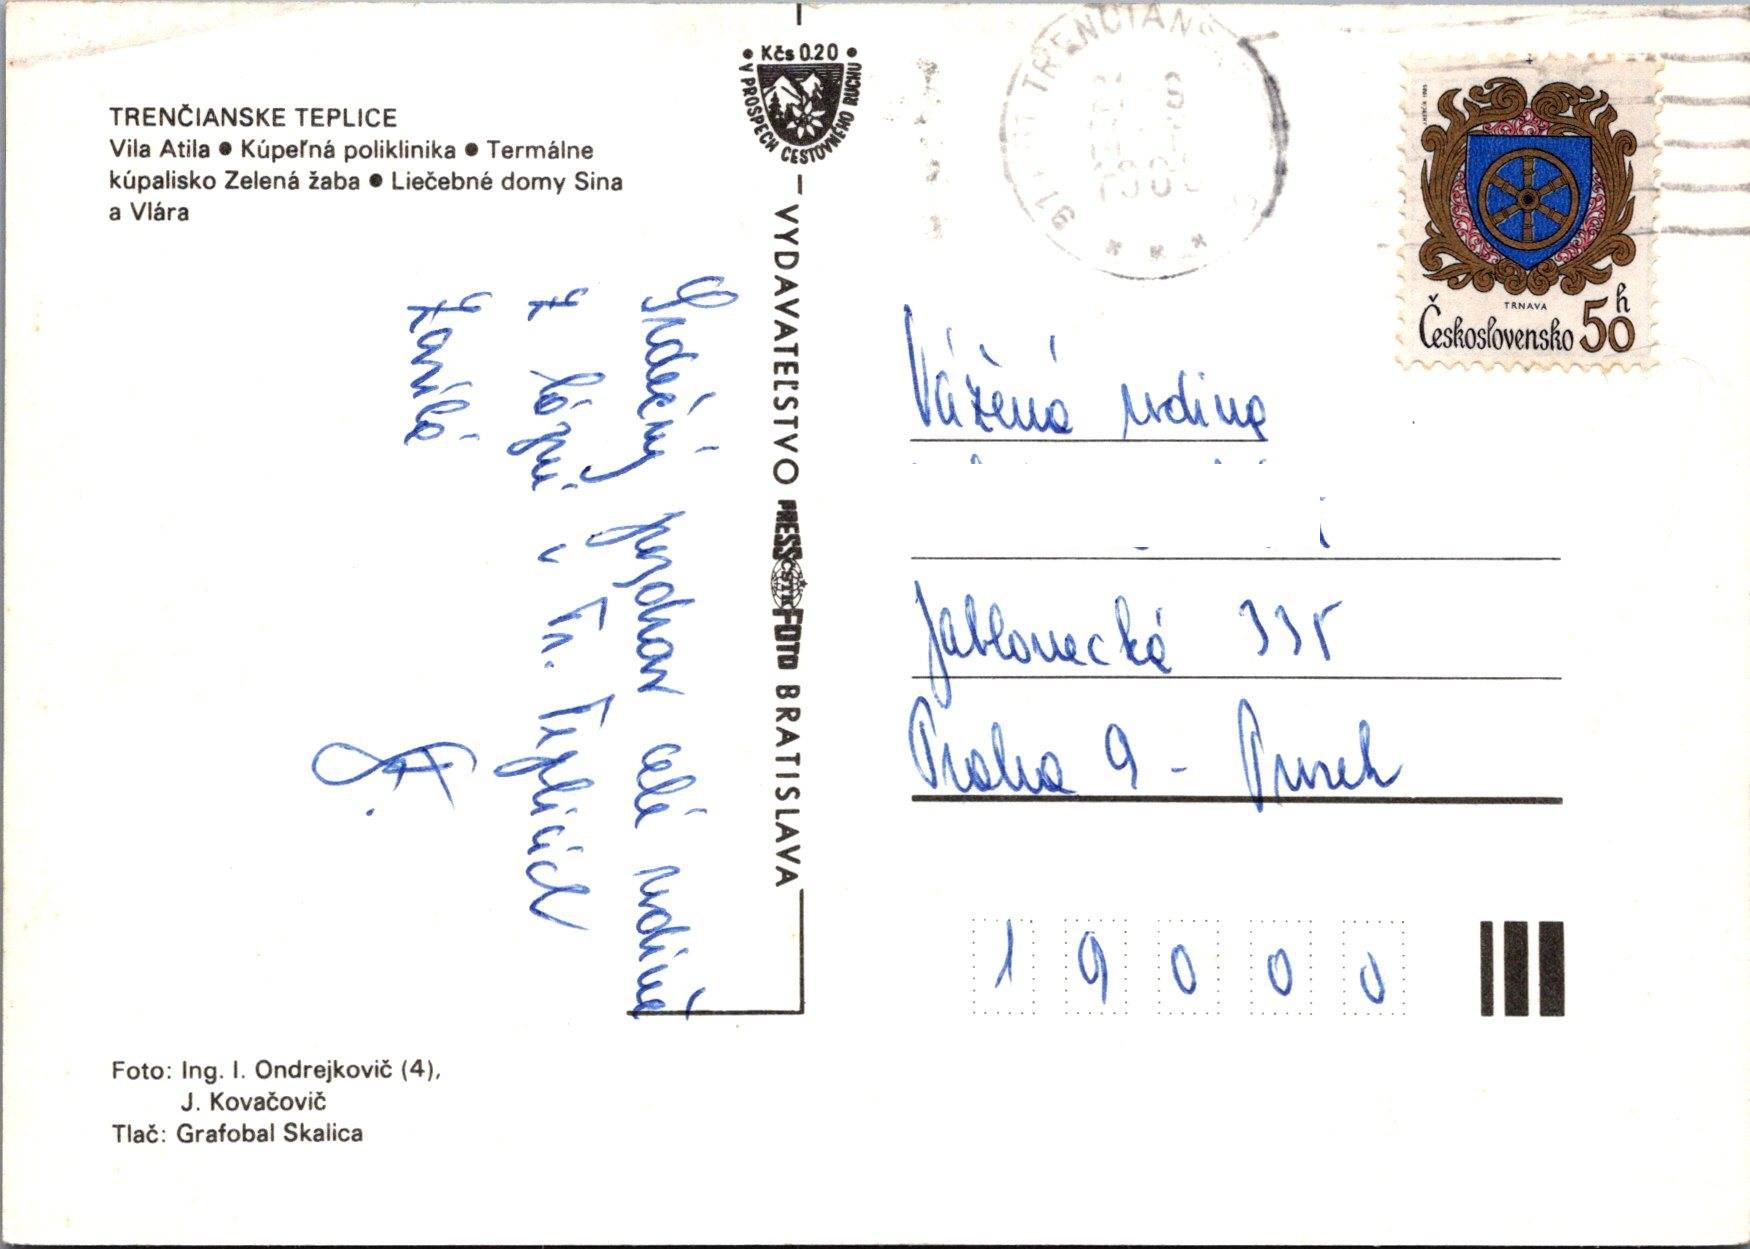 TRENČIANSKE TEPLICE
Vila Atila ● Kúpeľná poliklinika ● Termálne
kúpalisko Zelená žaba ● Liečebné domy Sina
a Vlára
• Kčs 0.20 •
V PROSPECH CESTOVNÉHO RUCHU
VYDAVATEĽSTVO PRESSFOTO BRATISLAVA
ČSTK
TRENČIANS
TRNAVA
Československo 50 h
Srdečný pozdrav celé rodině
z lázní v Tr. Teplicích
Vážená rodina
Jablonecká 335
Praha 9 - Prosek
19000
Foto: Ing. I. Ondrejkovič (4),
J. Kovačovič
Tlač: Grafobal Skalica